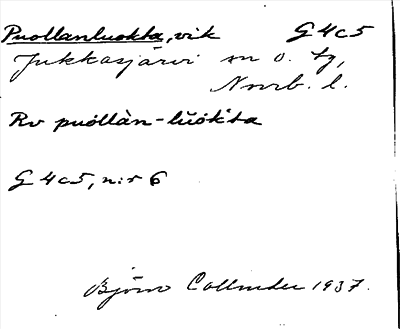 Puollanluokta, vik G 4c5
Jukkasjärvi sn o. tg,
Norrb. l.
Rv puo̍llàn-lŭo̍k'ta
G 4c5, n:r 6
Björn Collinder 1937.